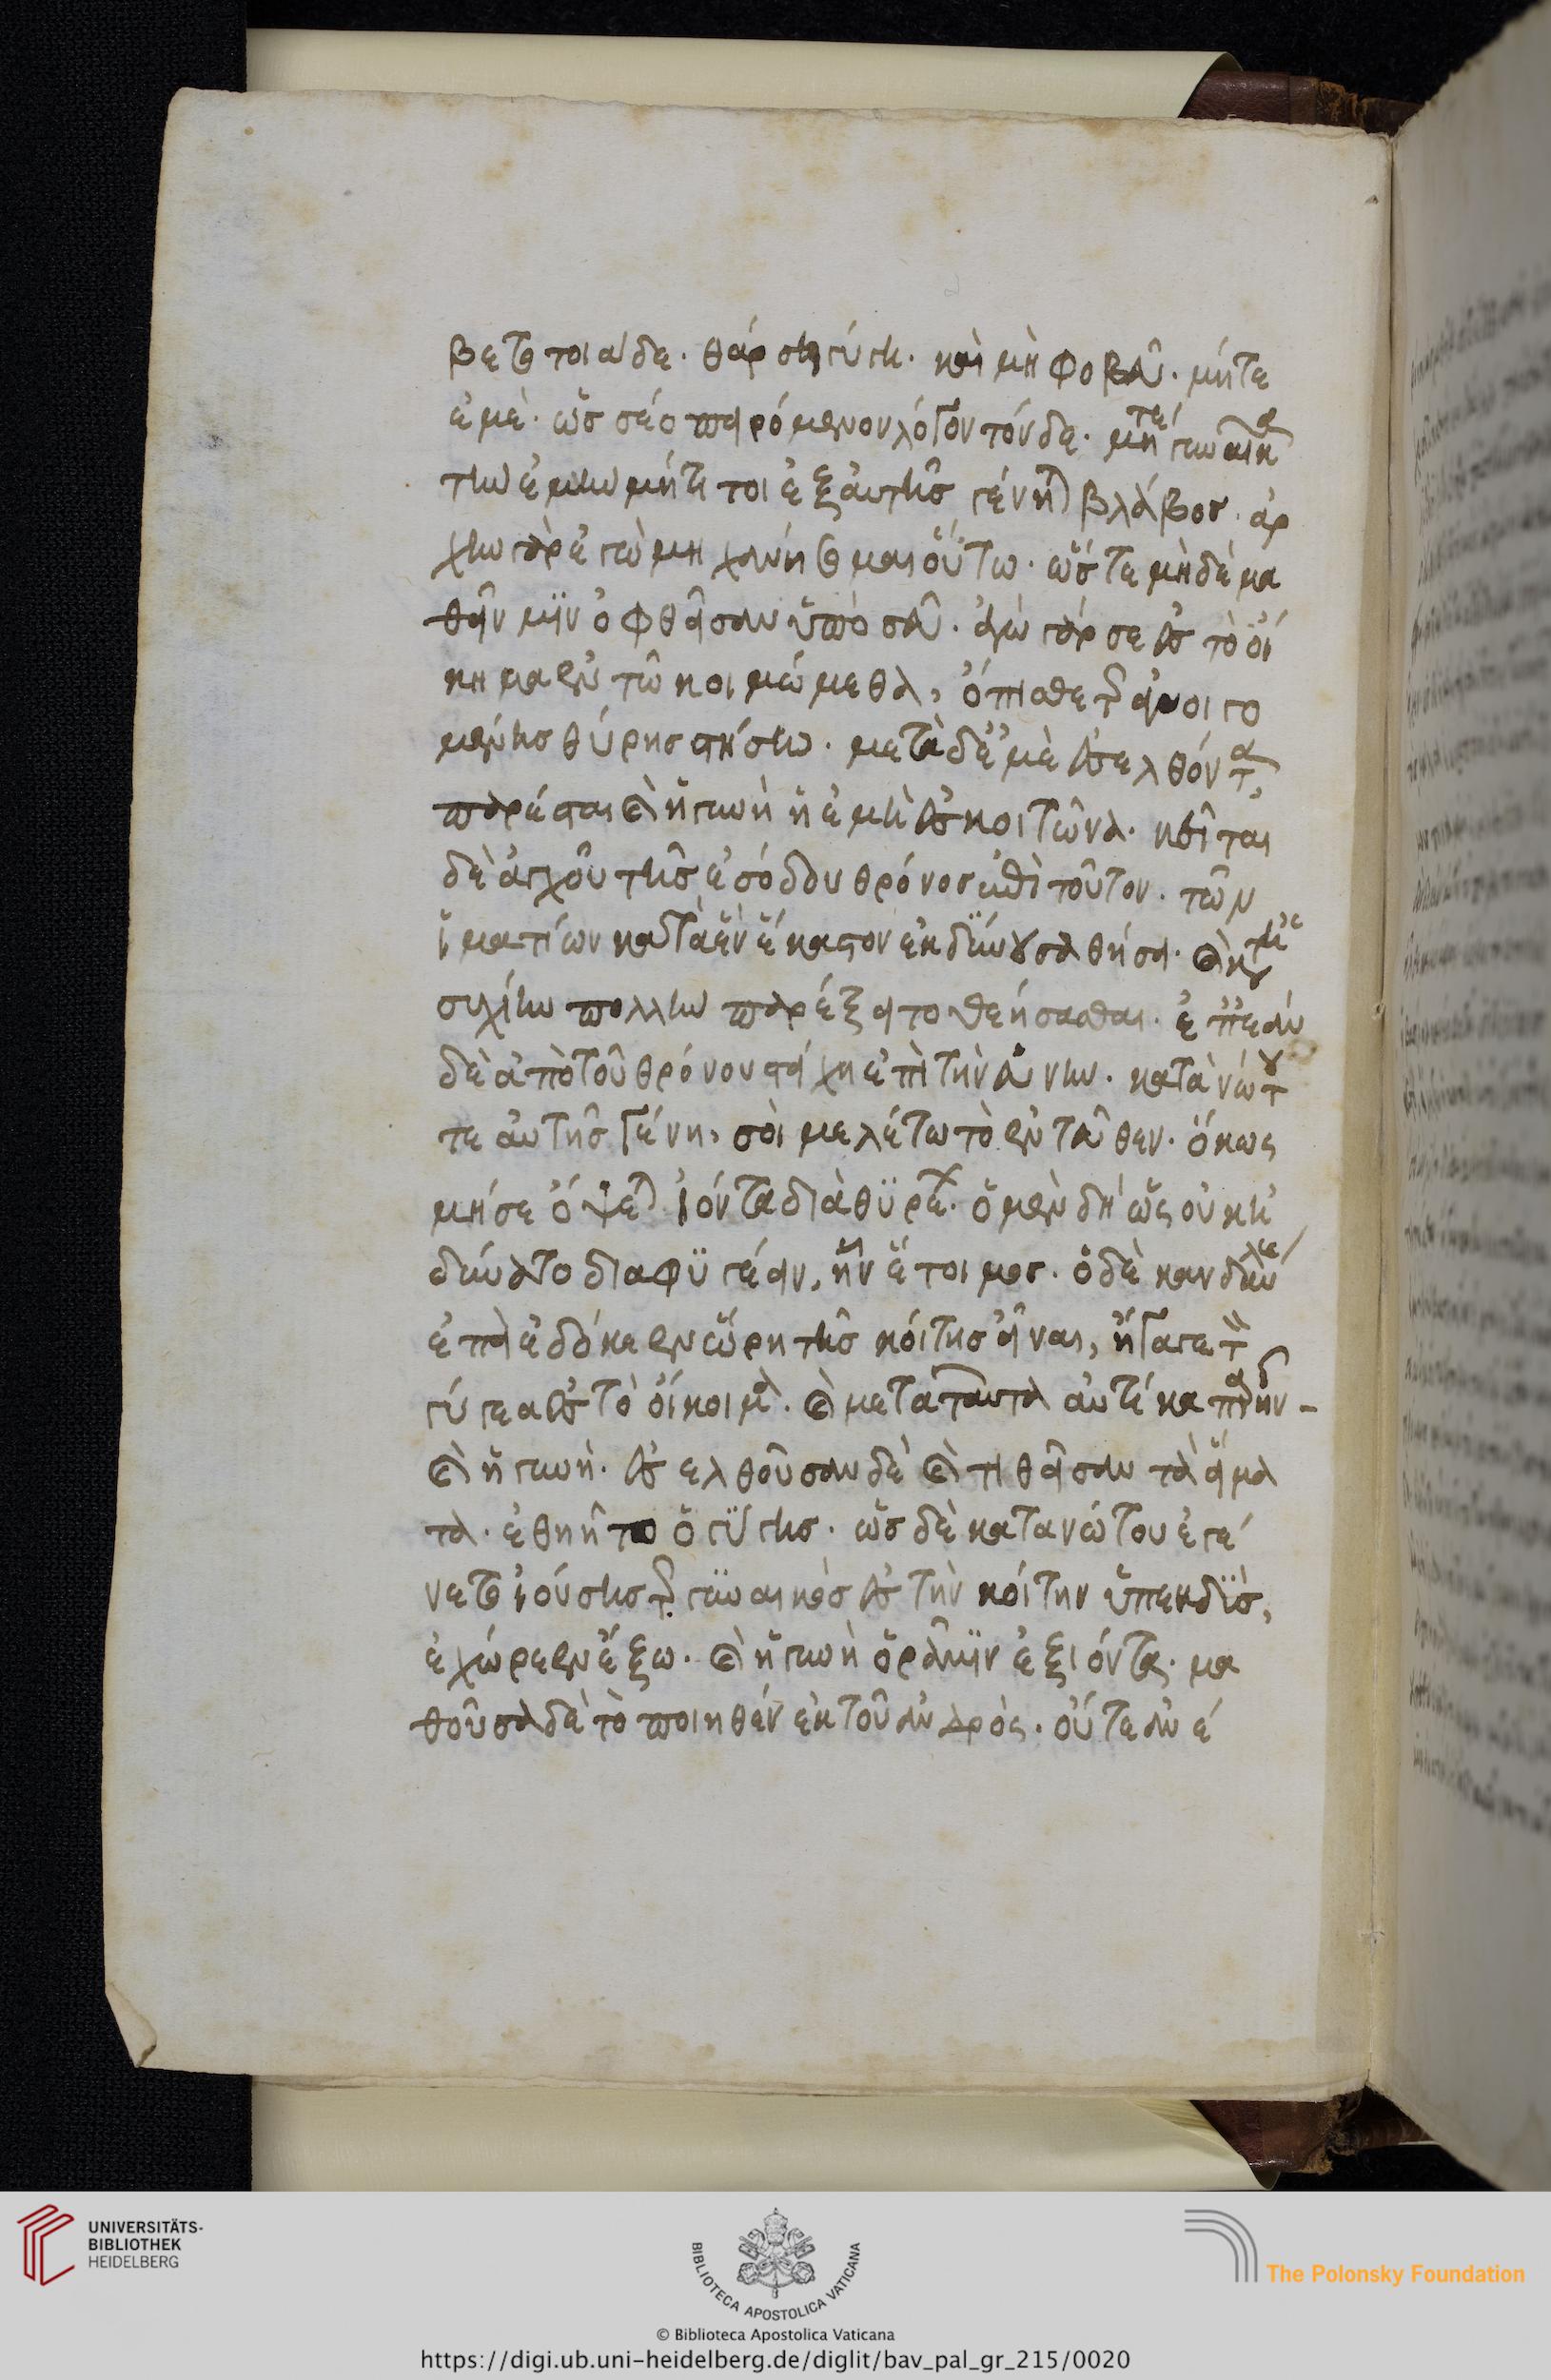 βετο τοιαδε. θάρσει γύγη. καὶ μὴ φοβεῦ. μήτε
ἐμὲ. ὥς σέο πειρόμενον λόγον τόνδε. μήτε γυναῖκα
τὴν ἐμὴν μήτι τοι ἐξ αὐτῆς γένηται βλάβος. ἀρ
χὴν γὰρ ἐγὼ μηχανήσομαι οὕτω. ὥστε μὴδὲ μα
θεῖν μιν ὀφθεῖσαν ὑπὸ σεῦ. ἐγὼ γάρ σε ἐς τὸ οἴ
κημα ἐν τῶ κοιμώμεθα, ὄπισθε τῆς ἀνοιγο
μένης θύρης στήσω. μετὰ δὲ ἐμὲ ἐσελθόντα,
παρέσται καὶ ἡ γυνὴ ἡ ἐμὴ ἐς κοιτῶνα. κεῖται
δὲ ἀγχοῦ τῆς ἐσόδου θρόνος ἐπὶ τοῦτον. τῶν
ἱματίων κατὰ ἓν ἕκαστον ἐκδύνουσα θήσει. καὶ κατ
συχίην πολλὴν παρέξει το θεήσασθαι. ἐπεὰν
δὲ ἀπὸ τοῦ θρόνου στείχη ἐπὶ τὴν εὐνὴν. κατὰ νώτου
τε αὐτῆς γένη, σοὶ μελέτω τὸ ἐνταῦθεν. ὅκως
μή σε ὄψεται ἰόντα διὰ θυρέων. ὁ μὲν δὴ ὡς οὐκ ἠ
δύνατο διαφυγέειν, ἦν ἕτοιμος. ὁ δὲ κανδαύλης
ἐπεὶ ἐδόκεεν ὥρη τῆς κοίτης εἶναι, ἤγαγε τὸν
γύγεα ἐς τὸ οἴκοιμα. καὶ μετα ταυτα αὐτίκα παρῆν
καὶ ἡ γυνὴ. ἐσελθοῦσαν δὲ καὶ τιθεῖσαν τὰ εἵμα
τα. ἐθηῆτο ὁ γύγης. ὡς δὲ κατα νώτου ἐγέ
νετο ἰούσης τῆς γυναικὸς ἐς τὴν κοίτην ὑπεκδὺς,
ἐχώρεεν ἔξω. καὶ ἡ γυνὴ ὁρᾶ μιν ἐξιόντα. μα
θοῦσα δὲ τὸ ποιηθέν ἐκ τοῦ ἀνδρὸς. οὔτε ἀνέ
UNIVERSITÄTS-
BIBLIOTHEK
HEIDELBERG
BIBLIOTECA APOSTOLICA VATICANA
The Polonsky Foundation
© Biblioteca Apostolica Vaticana
https://digi.ub.uni-heidelberg.de/diglit/bav_pal_gr_215/0020